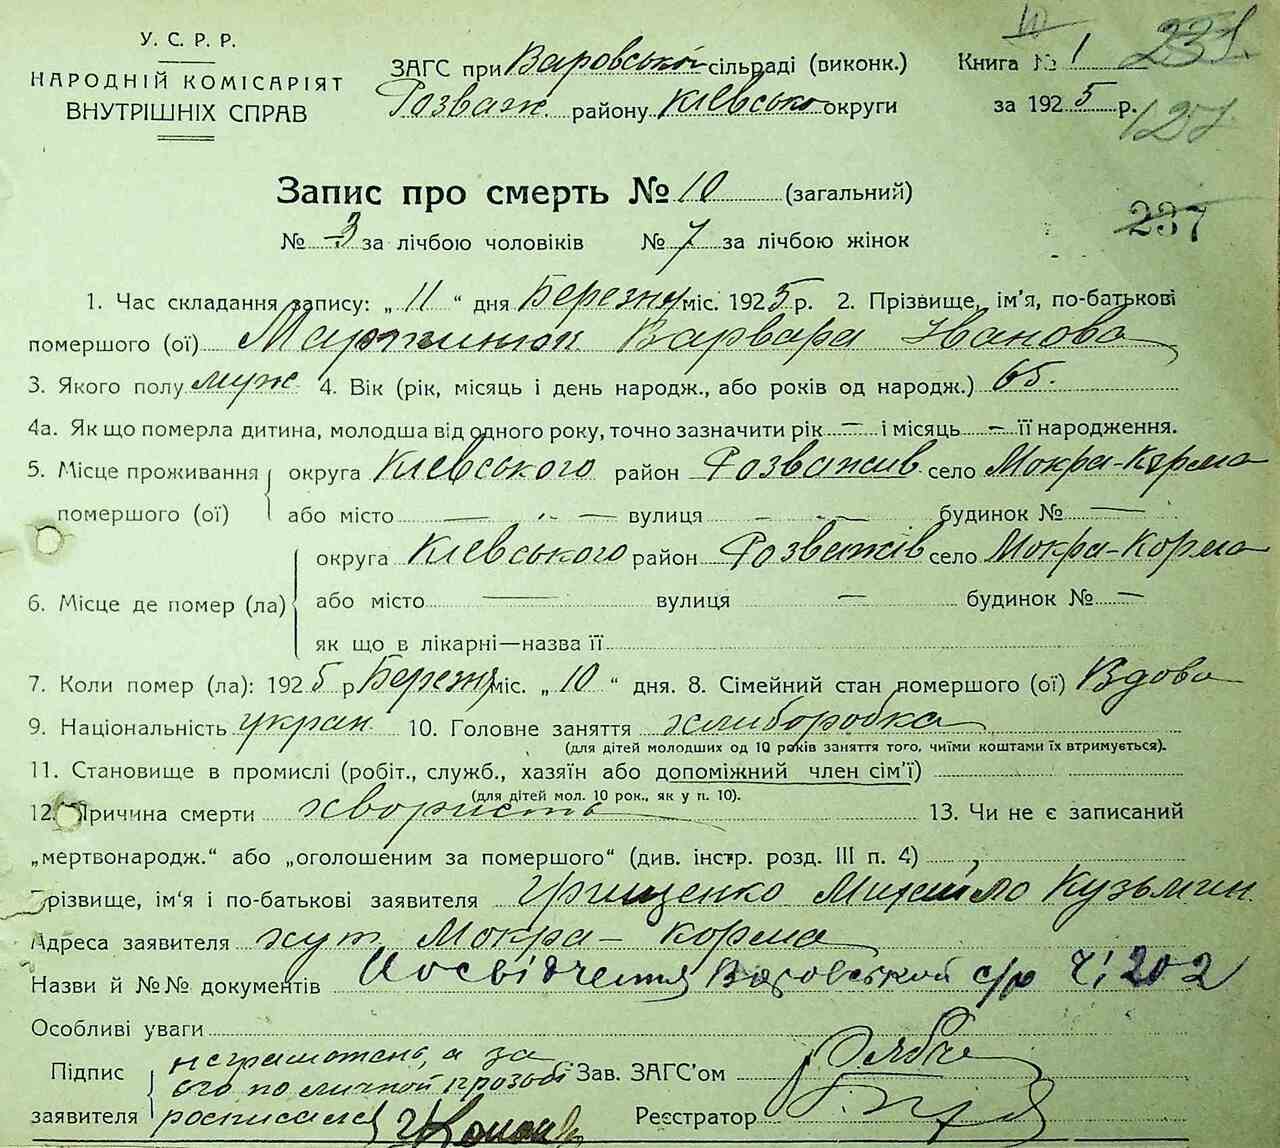 У. С. Р. Р.
НАРОДНІЙ КОМІСАРІЯТ
ВНУТРІШНІХ СПРАВ
ЗАГС при Варовської сільраді (виконк.)
Розваж. району Київсько округи
Книга № 1 231
за 1925 р. 127
237
Запис про смерть № 10 (загальний)
№ 3 за лічбою чоловіків № 7 за лічбою жінок
1. Час складання запису: „ 11 “ дня Березня міс. 1925 р. 2. Прізвище, ім'я, по-батькові
помершого (ої) Мартинюк Варвара Іванова
3. Якого полу муж. 4. Вік (рік, місяць і день народж., або років од народж.) 65.
4а. Як що померла дитина, молодша від одного року, точно зазначити рік — і місяць — її народження.
5. Місце проживання помершого (ої) округа Киевського район Розважів. село Мокра-Корма
або місто — вулиця — будинок № —
6. Місце де помер (ла) округа Киевського район Розважів село Мокра-Корма
або місто — вулиця — будинок № —
як що в лікарні—назва її
7. Коли помер (ла): 1925 р. Березня міс. „ 10 “ дня. 8. Сімейний стан помершого (ої) Вдова
9. Національність укран. 10. Головне заняття хлиборобка
(для дітей молодших од 10 років заняття того, чиїми коштами їх втримується).
11. Становище в промислі (робіт., служб., хазяїн або допоміжний член сім'ї)
(для дітей мол. 10 рок., як у п. 10).
12. Причина смерти хвориста 13. Чи не є записаний
„мертвонародж.“ або „оголошеним за помершого“ (див. інстр. розд. III п. 4)
Прізвище, ім'я і по-батькові заявителя Грищенко Михайло Кузьмин.
Адреса заявителя хут. Мокра-корма
Назви й №№ документів Посвідчення Варовської с/р Ч: 202
Особливі уваги
Підпис заявителя неграмотень, а за
его по личной прозьбі
росписался
Зав. ЗАГС'ом
Реєстратор